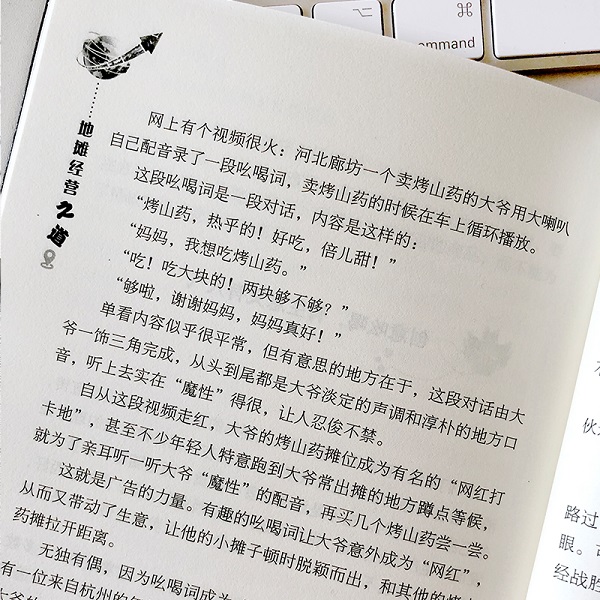 ⌥
⌘
command
地摊经营之道
网上有个视频很火：河北廊坊一个卖烤山药的大爷用大喇叭
自己配音录了一段吆喝词，卖烤山药的时候在车上循环播放。
这段吆喝词是一段对话，内容是这样的：
“烤山药，热乎的！好吃，倍儿甜！”
“妈妈，我想吃烤山药。”
“吃！吃大块的！两块够不够？”
“够啦，谢谢妈妈，妈妈真好！”
单看内容似乎很平常，但有意思的地方在于，这段对话由大
爷一饰三角完成，从头到尾都是大爷淡定的声调和淳朴的地方口
音，听上去实在“魔性”得很，让人忍俊不禁。
自从这段视频走红，大爷的烤山药摊位成为有名的“网红打
卡地”，甚至不少年轻人特意跑到大爷常出摊的地方蹲点等候，
就为了亲耳听一听大爷“魔性”的配音，再买几个烤山药尝一尝。
这就是广告的力量。有趣的吆喝词让大爷意外成为“网红”，
从而又带动了生意，让他的小摊子顿时脱颖而出，和其他的烤山
药摊拉开距离。
无独有偶，因为吆喝词成为
有一位来自杭州的
伙
路过
眼。
经战胜